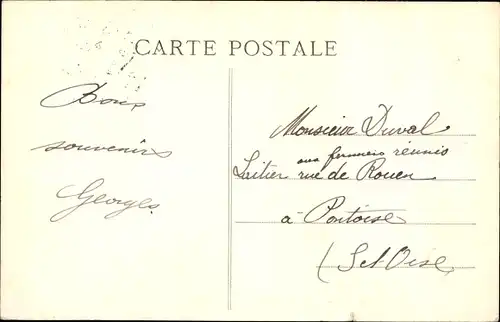 CARTE POSTALE
Bons
souvenirs
Georges
Monsieur Duval
aux fermiers réunis
Laitier rue de Rouen
à Pontoise
(S et Oise)